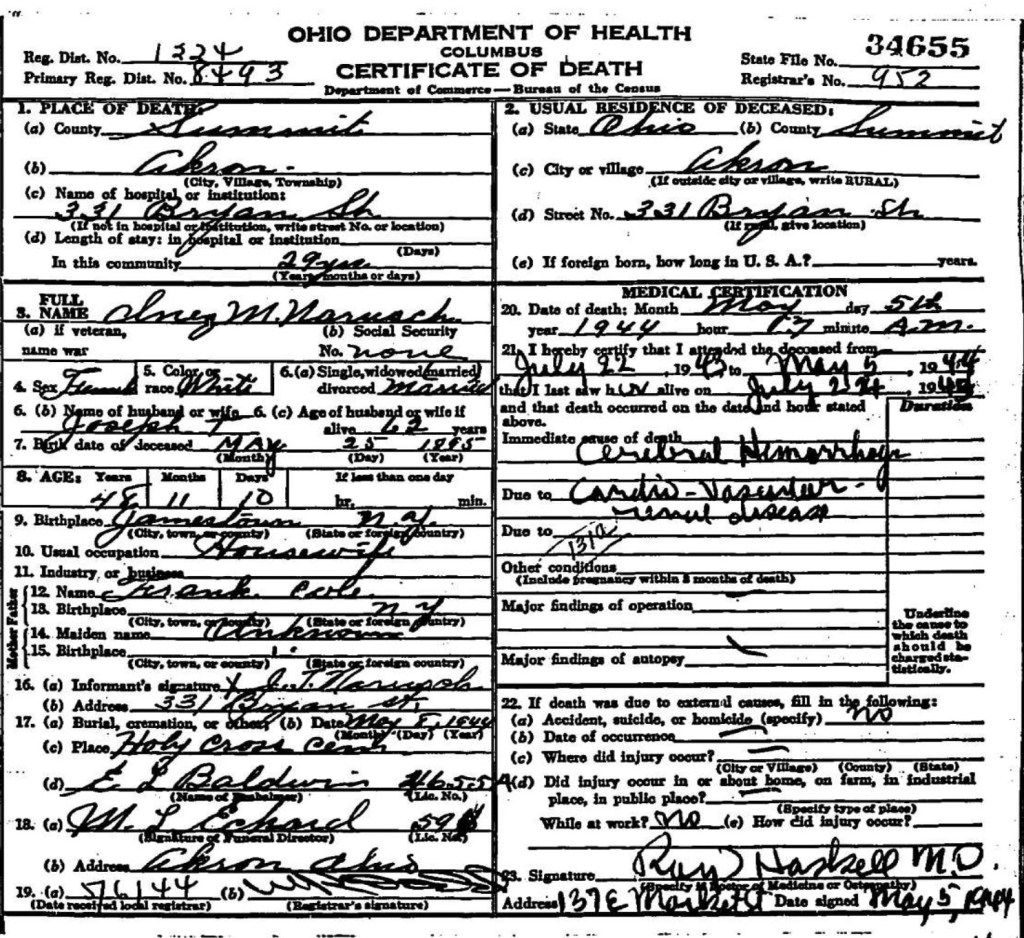 OHIO DEPARTMENT OF HEALTH
COLUMBUS
CERTIFICATE OF DEATH
Department of Commerce — Bureau of the Census
Reg. Dist. No. 1224
Primary Reg. Dist. No. 8493
State File No. 34655
Registrar's No. 952
1. PLACE OF DEATH:
(a) County Summit
(b) Akron
(City, Village, Township)
(c) Name of hospital or institution:
331 Bryan St.
(If not in hospital or institution, write street No. or location)
(d) Length of stay: in hospital or institution
(Days)
In this community 29 yrs
(Years, months or days)
2. USUAL RESIDENCE OF DECEASED:
(a) State Ohio (b) County Summit
(c) City or village Akron
(If outside city or village, write RURAL)
(d) Street No. 331 Bryan St.
(If rural, give location)
(e) If foreign born, how long in U. S. A.? years.
3. FULL NAME Inez M. Narusch
(a) if veteran, name war
(b) Social Security No. none
4. Sex 5. Color or race White 6. (a) Single, widowed, married, divorced Married
6. (b) Name of husband or wife Joseph T 6. (c) Age of husband or wife if alive 62 years
7. Birth date of deceased MAY 25 1895
(Month) (Day) (Year)
8. AGE: Years Months Days If less than one day
48 11 10 hr. min.
9. Birthplace Jamestown N.Y.
(City, town, or county) (State or foreign country)
10. Usual occupation Housewife
11. Industry or business
Father
12. Name Frank Cole
13. Birthplace N Y
(City, town, or county) (State or foreign country)
Mother
14. Maiden name Unknown
15. Birthplace
(City, town, or county) (State or foreign country)
16. (a) Informant's signature X J. T. Narusch
(b) Address 331 Bryan St.
17. (a) Burial, cremation, or other; (b) Date May 8, 1944
(Month) (Day) (Year)
(c) Place Holy Cross Cem
(d) E L Baldwin 4655A
(Name of Embalmer) (Lic. No.)
18. (a) M. L Eckard
(Signature of Funeral Director) (Lic. No.)
(b) Address Akron Ohio
19. (a) (b)
(Date received local registrar) (Registrar's signature)
MEDICAL CERTIFICATION
20. Date of death: Month May day 5th
year 1944 hour minute A.M.
21. I hereby certify that I attended the deceased from
July 22, 1943 to May 5, 1944
that I last saw her alive on July 24 1943
and that death occurred on the date and hour stated above.
Duration
Immediate cause of death
Cerebral Hemorrhage
Due to Cardio-Vascular-
renal disease
Due to
131a
Other conditions
(Include pregnancy within 3 months of death)
Major findings of operation
Major findings of autopsy
Underline the cause to which death should be charged statistically.
22. If death was due to external causes, fill in the following:
(a) Accident, suicide, or homicide (specify) no
(b) Date of occurrence
(c) Where did injury occur?
(City or Village) (County) (State)
(d) Did injury occur in or about home, on farm, in industrial
place, in public place?
(Specify type of place)
While at work? no (e) How did injury occur?
23. Signature Ray Haskell M.D.
(Specify if Doctor of Medicine or Osteopathy)
Address 137 E Market St Date signed May 5, 1944